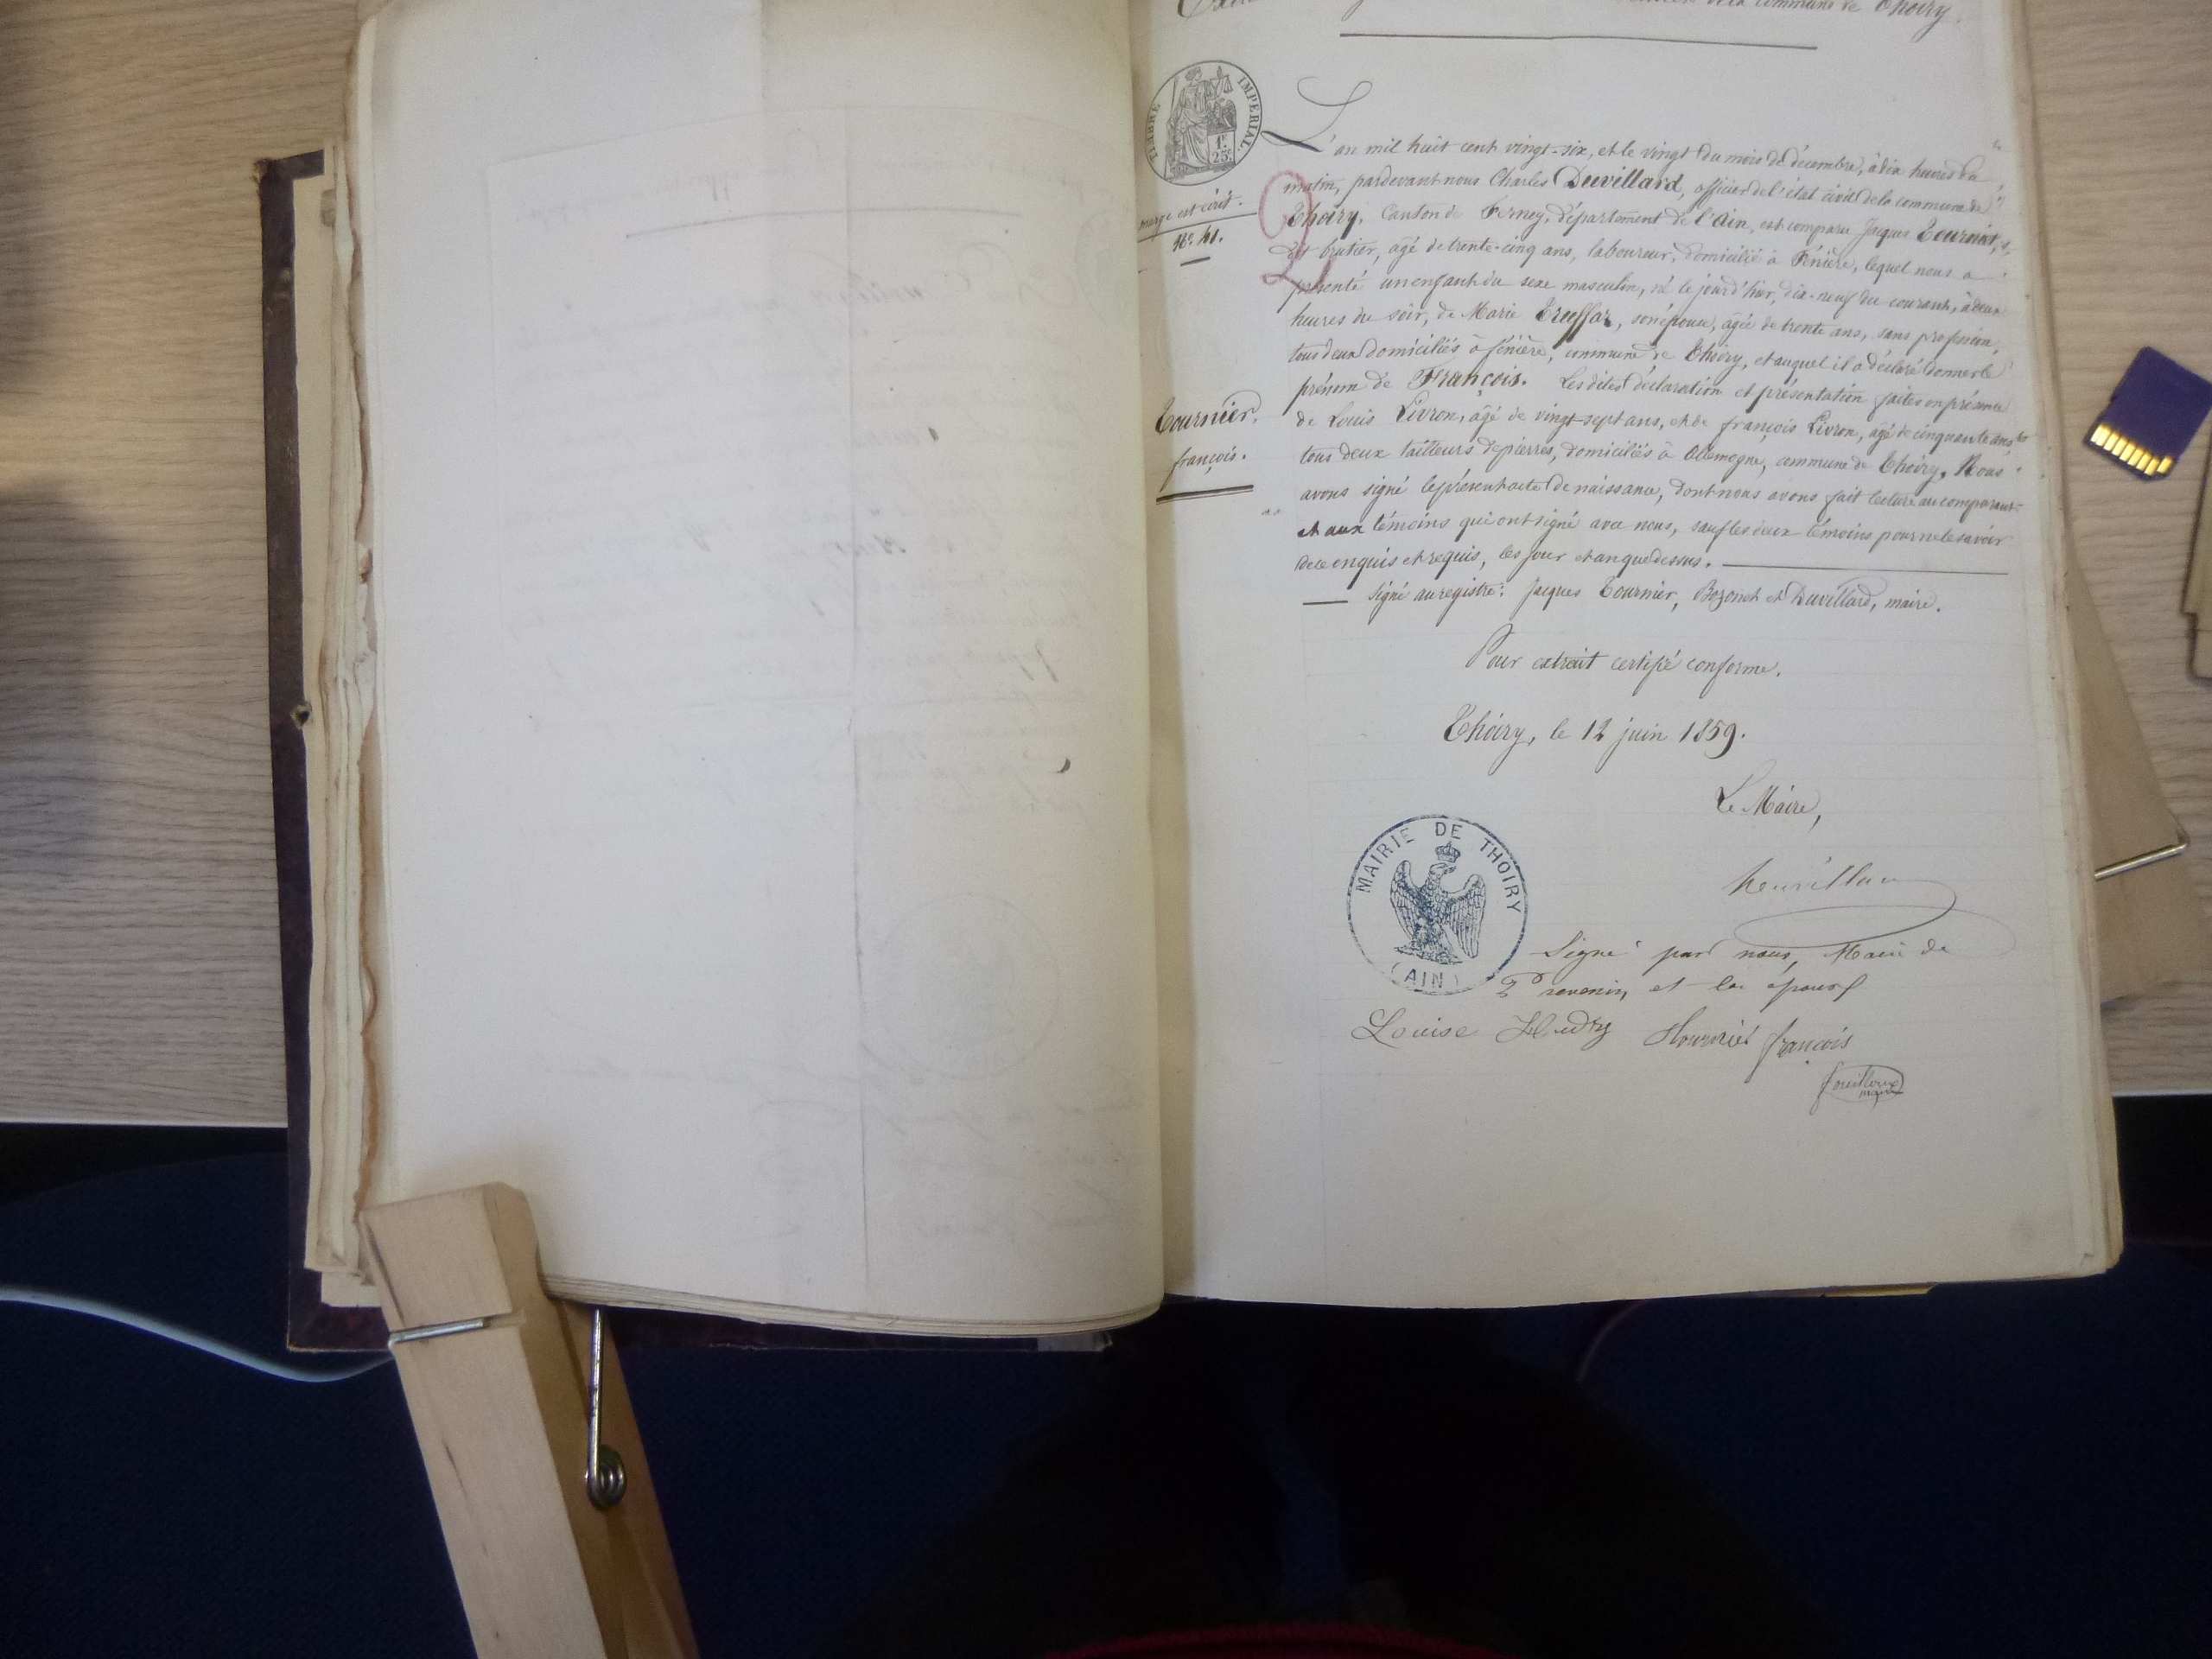 de la commune de Thoiry.
TIMBRE IMPERIAL
1F. 25c
marge est écrit.
No. 41.
L'an mil huit cent vingt-six, et le vingt du mois de décembre, à dix heures du
matin, pardevant nous Charles Duvillard, officier de l'état civil de la commune de
Thoiry, Canton de Ferney, département de l'Ain, est comparu Jacques Tournier,
dit brutier, agé de trente-cinq ans, laboureur, domicilié à Fenière, lequel nous a
présenté un enfant du sexe masculin, né le jour d'hier, dix-neuf du courant, à deux
heures du soir, de Marie Truffaz, son épouse, âgée de trente ans, sans profession,
tous deux domiciliés à fénière, commune de Thoiry, et auquel il a déclaré donner le
prénom de François. Les dites déclaration et présentation faites en présence
de Louis Livron, agé de vingt-sept ans, et de françois Livron, agé de cinquante ans
Tournier
françois.
tous deux tailleurs de pierres, domiciliés à Allemogne, commune de Thoiry. Nous
avons signé le présent acte de naissance, dont nous avons fait lecture au comparant
et aux témoins qui ont signé avec nous, sauf les deux témoins pour ne le savoir
de ce enquis et requis, les jour et an que dessus.
Signé au registre: Jacques Tournier, Bozonet et Duvillard, maire.
Pour extrait certifié conforme.
Thoiry, le 12 juin 1859.
Le Maire,
MAIRIE DE THOIRY
(AIN)
Signé par nous, Maire de
Prevenin, et les époux
Louise Hudry Tournier françois
fouilloux
maire